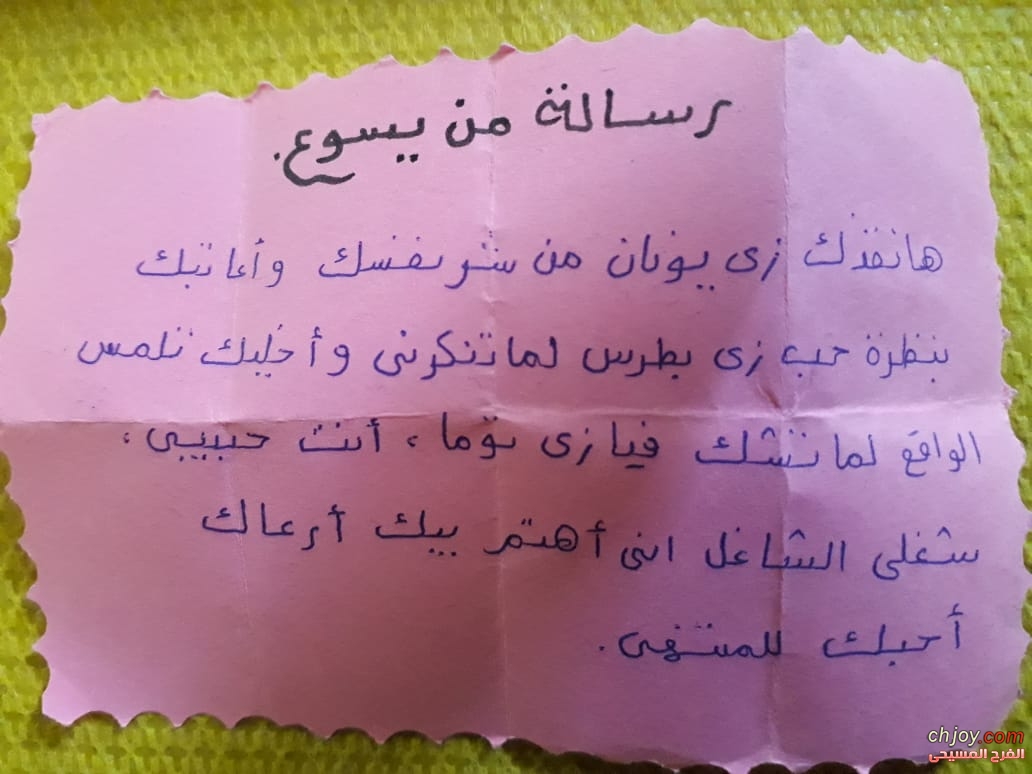 رسالة من يسوع.
هانقذك زى يونان من شر نفسك وأعاتبك
بنظرة حب زى بطرس لما تنكرنى وأخليك تلمس
الواقع لما تشك فيا زى توما، أنت حبيبى،
شغلى الشاغل انى أهتم بيك أرعاك
أحبك للمنتهى.
chjoy.com
الفرح المسيحى